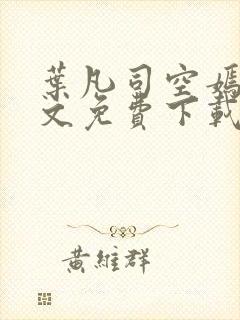 葉凡司空嫣
文免費下載
黃維群